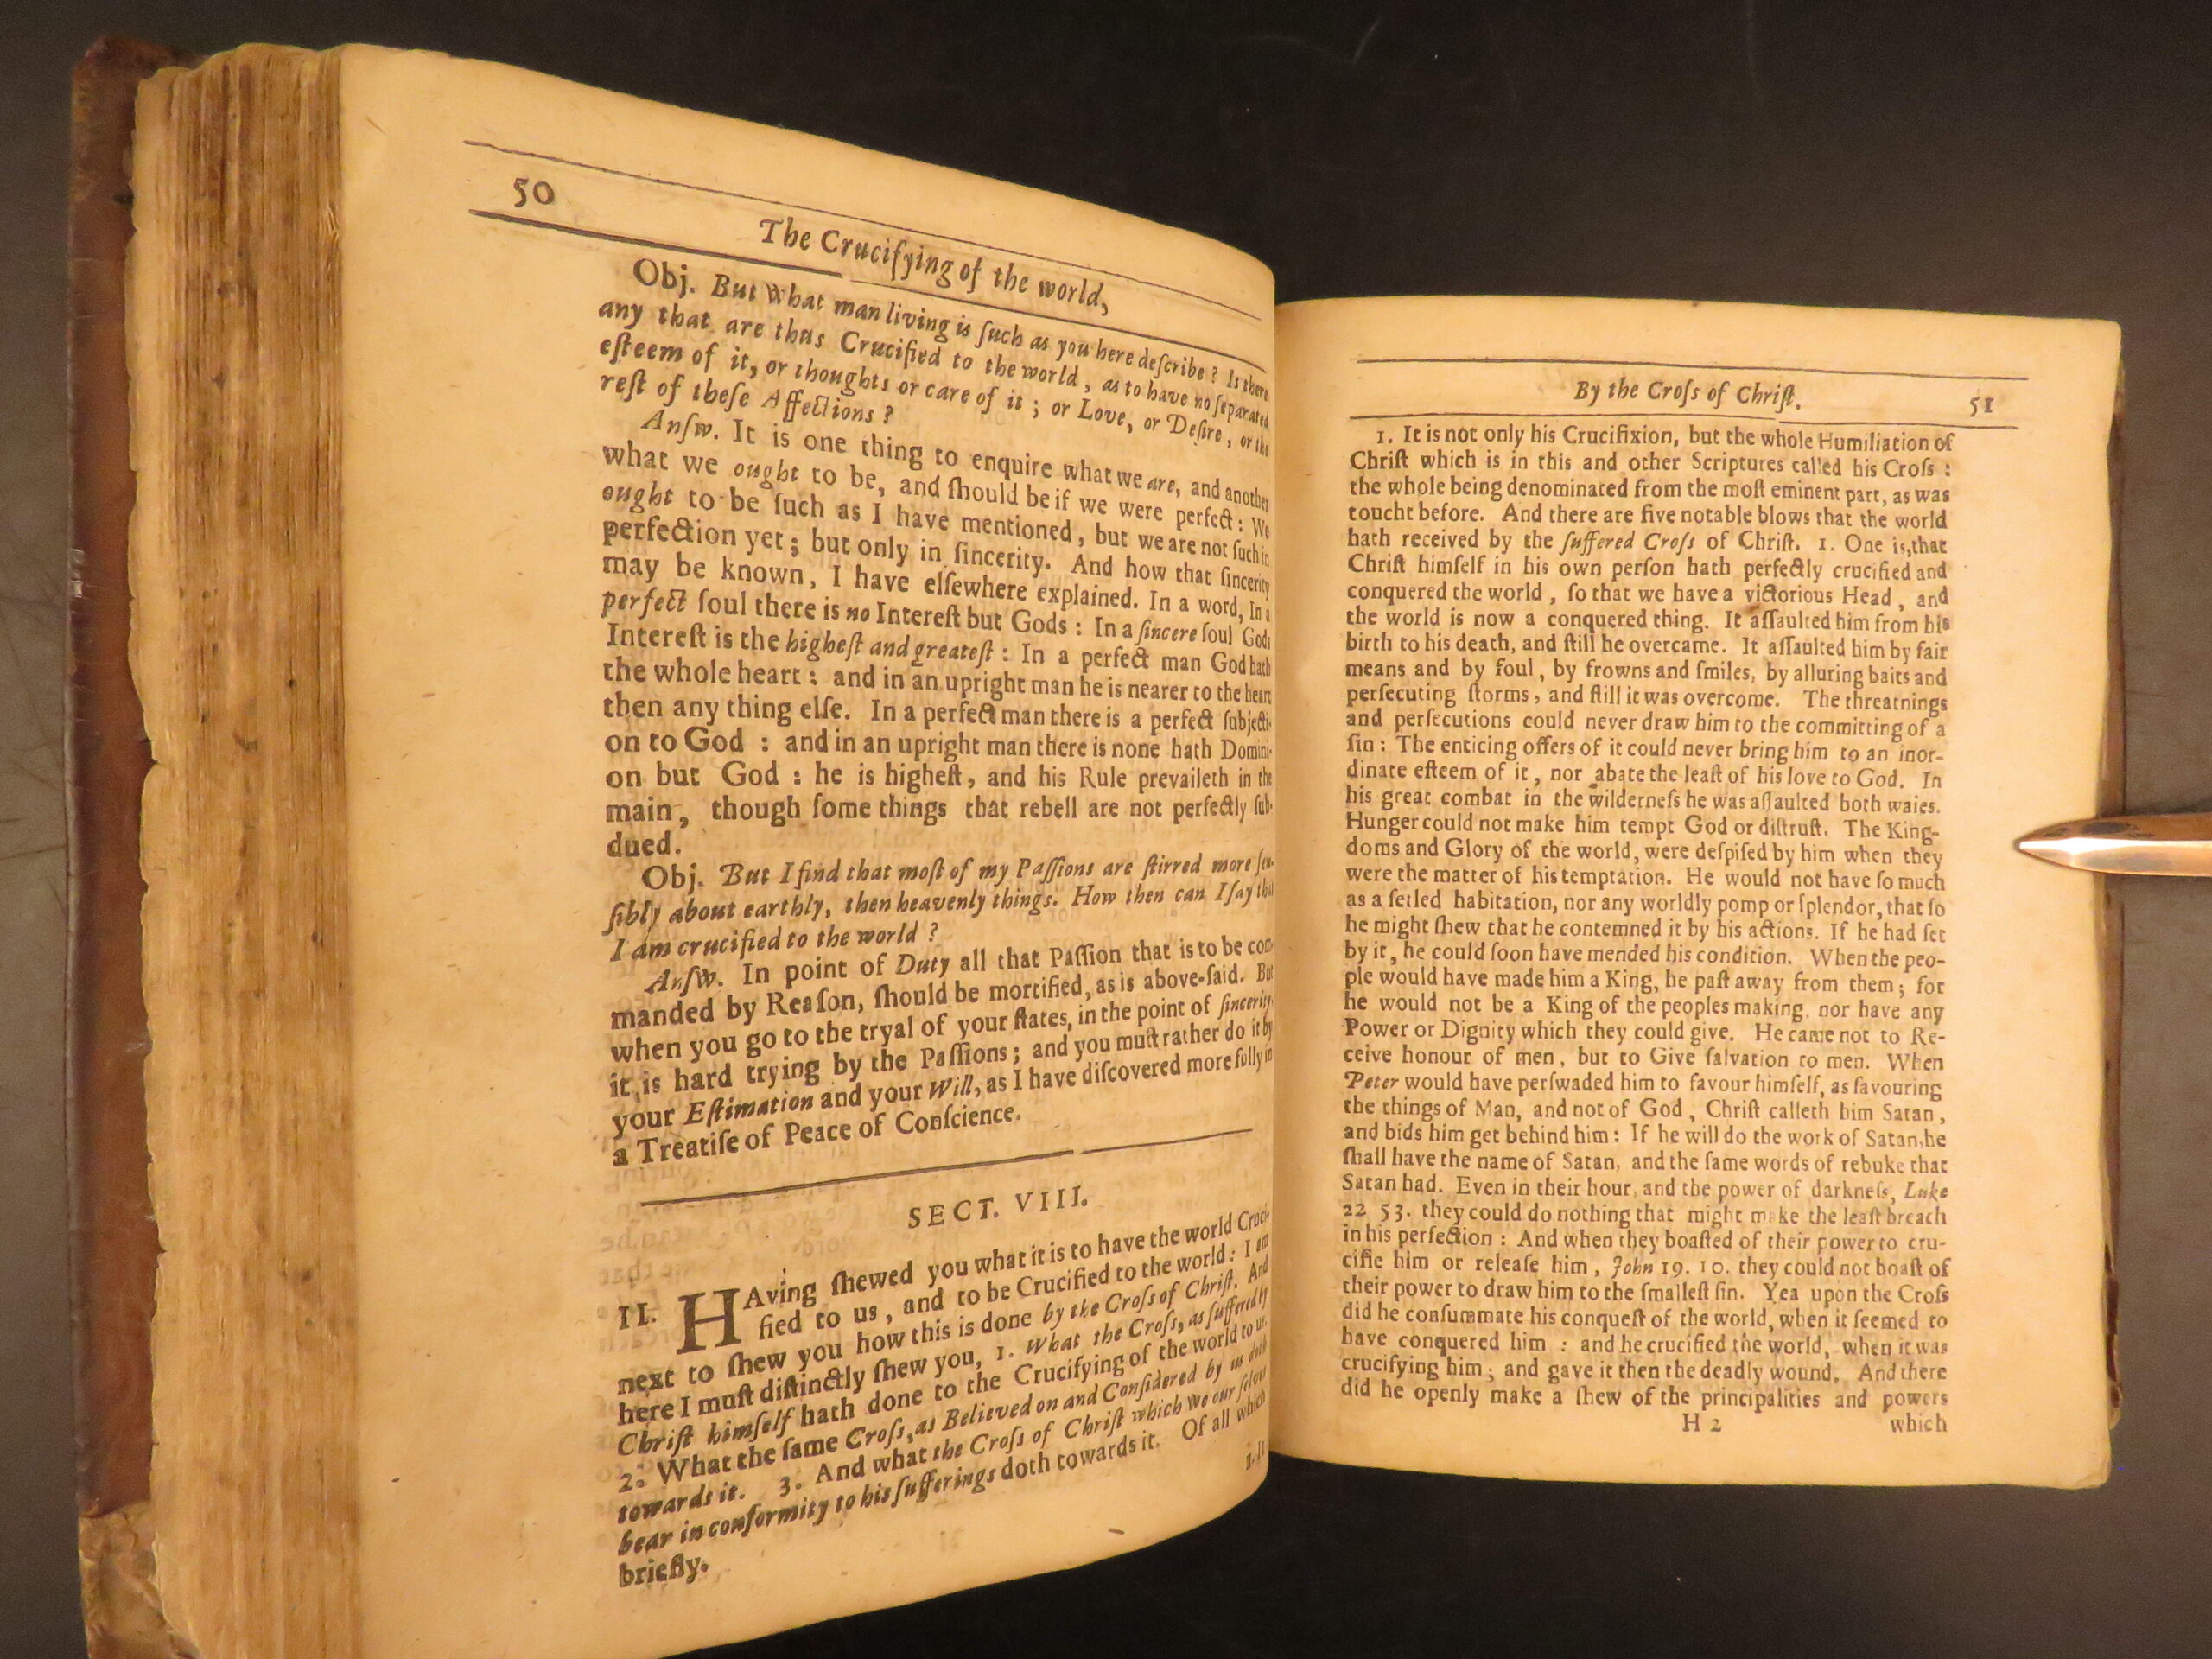 50
The Cruciſying of the world,
Obj. But what man living is ſuch as you here deſcribe? Is there
any that are thus Crucified to the world, as to have no ſeparated
eſteem of it, or thoughts or care of it; or Love, or Deſire, or the
reſt of theſe Affections?
Anſw. It is one thing to enquire what we are, and another
what we ought to be, and ſhould be if we were perfect: We
ought to be ſuch as I have mentioned, but we are not ſuch in
perfection yet; but only in ſincerity. And how that ſincerity
may be known, I have elſewhere explained. In a word, In a
perfect ſoul there is no Intereſt but Gods: In a ſincere ſoul Gods
Intereſt is the higheſt and greateſt: In a perfect man God hath
the whole heart: and in an upright man he is nearer to the heart
then any thing elſe. In a perfect man there is a perfect ſubjecti-
on to God: and in an upright man there is none hath Domini-
on but God: he is higheſt, and his Rule prevaileth in the
main, though ſome things that rebell are not perfectly ſub-
dued.
Obj. But I find that moſt of my Paſſions are ſtirred more ſen-
ſibly about earthly, then heavenly things. How then can I ſay that
I am crucified to the world?
Anſw. In point of Duty all that Paſſion that is to be com-
manded by Reaſon, ſhould be mortified, as is above-ſaid. But
when you go to the tryal of your ſtates, in the point of ſincerity,
it is hard trying by the Paſſions; and you muſt rather do it by
your Eſtimation and your Will, as I have diſcovered more fully in
a Treatiſe of Peace of Conſcience.
SECT. VIII.
II. HAving ſhewed you what it is to have the world Cruci-
fied to us, and to be Crucified to the world: I am
next to ſhew you how this is done by the Croſs of Chriſt. And
here I muſt diſtinctly ſhew you, 1. What the Croſs, as ſuffered by
Chriſt himſelf hath done to the Crucifying of the world to us.
2. What the ſame Croſs, as Believed on and Conſidered by us doth
towards it. 3. And what the Croſs of Chriſt which we our ſelves
bear in conformity to his ſufferings doth towards it. Of all which
briefly.
1. It
By the Croſs of Chriſt.
51
1. It is not only his Crucifixion, but the whole Humiliation of
Chriſt which is in this and other Scriptures called his Croſs:
the whole being denominated from the moſt eminent part, as was
toucht before. And there are five notable blows that the world
hath received by the ſuffered Croſs of Chriſt. 1. One is, that
Chriſt himſelf in his own perſon hath perfectly crucified and
conquered the world, ſo that we have a victorious Head, and
the world is now a conquered thing. It aſſaulted him from his
birth to his death, and ſtill he overcame. It aſſaulted him by fair
means and by foul, by frowns and ſmiles, by alluring baits and
perſecuting ſtorms, and ſtill it was overcome. The threatnings
and perſecutions could never draw him to the committing of a
ſin: The enticing offers of it could never bring him to an inor-
dinate eſteem of it, nor abate the leaſt of his love to God. In
his great combat in the wilderneſs he was aſſaulted both waies.
Hunger could not make him tempt God or diſtruſt. The King-
doms and Glory of the world, were deſpiſed by him when they
were the matter of his temptation. He would not have ſo much
as a ſetled habitation, nor any worldly pomp or ſplendor, that ſo
he might ſhew that he contemned it by his actions. If he had ſet
by it, he could ſoon have mended his condition. When the peo-
ple would have made him a King, he paſt away from them; for
he would not be a King of the peoples making, nor have any
Power or Dignity which they could give. He came not to Re-
ceive honour of men, but to Give ſalvation to men. When
Peter would have perſwaded him to favour himſelf, as ſavouring
the things of Man, and not of God, Chriſt calleth him Satan,
and bids him get behind him: If he will do the work of Satan, he
ſhall have the name of Satan, and the ſame words of rebuke that
Satan had. Even in their hour, and the power of darkneſs, Luke
22 53. they could do nothing that might make the leaſt breach
in his perfection: And when they boaſted of their power to cru-
cifie him or releaſe him, John 19. 10. they could not boaſt of
their power to draw him to the ſmalleſt ſin. Yea upon the Croſs
did he conſummate his conqueſt of the world, when it ſeemed to
have conquered him: and he crucified the world, when it was
crucifying him; and gave it then the deadly wound. And there
did he openly make a ſhew of the principalities and powers
H 2
which